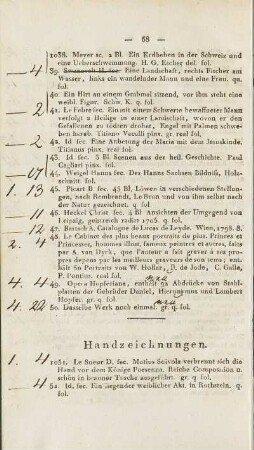 — 68 —
1038. Meyer sc. 2 Bl. Ein Erdbeben in der Schweiz und
eine Ueberschwemmung. H. G. Escher del. fol.
4 39. Swanevelt H. sec. Eine Landschaft, rechts Fischer am
Wasser, links ein wandelnder Mann und eine Frau. qu.
fol.
40. Ein Hirt an einem Grabmal sitzend, vor ihm steht eine
weibl. Figur. Schw. K. q. fol.
2 41. Le Febre sec. Ein mit einem Schwerte bewaffneter Mann
verfolgt 2 Heilige in einer Landschaft, wovon er den
Gefallenen zu tödten drohet, Engel mit Palmen schwe-
ben herab. Titianus Vecelli pinx. gr. real fol.
2 42. Id. sec. Eine Anbetung der Maria mit dem Jesuskinde.
Titianus pinx. real fol.
43. Id. sec. 3 Bl. Scenen aus der heil. Geschichte. Paul
Cagliari pinx. fol.
17 44. Weigel Hanns sec. Des Hanns Sachsen Bildniß, Holz-
schnitt. fol.
1. 13 45. Picart B. sec. 43 Bl. Löwen in verschiedenen Stellun-
gen, nach Rembrandt, Le Brun und von ihm selbst nach
der Natur gezeichnet. q. fol.
11 46. Merkel Christ. sec. 4 Bl. Ansichten der Umgegend von
Leipzig, geistreich radirt 1795. q. fol.
12 47. Bartsch A. Catalogue de Lucas de Leyde. Wien, 1798. 8.
2. 4 48. Le Cabinet des plus beaux portraits de plus. Princes et
Princesses, hommes illus, fameux peintres et autres, faits
par A. van Dyck, que l'auteur a fait graver à ses pro-
pres depens par les meilleurs graveurs de son tems; ent-
hält 80 Portraits von W. Hollar, P. de Jode, C. Galle,
P. Pontius. real fol.
4. 4 49. Opera Hopferiana, enthält 92 Abdrücke von Stahl-
platten der Gebrüder Daniel, Hieronymus und Lambert
Hopfer. gr. q. fol.
4. 22 50. Dasselbe Werk noch einmal. gr. q. fol.
Handzeichnungen.
1. 4 1051. Le Sueur D. sec. Mutius Scävola verbrennt sich die
Hand vor dem Könige Porsenna. Reiche Composition u.
schön in brauner Tusche ausgeführt. gr. q. fol.
4 52. Id. sec. Ein liegender weiblicher Akt, in Rothstein. q.
fol.